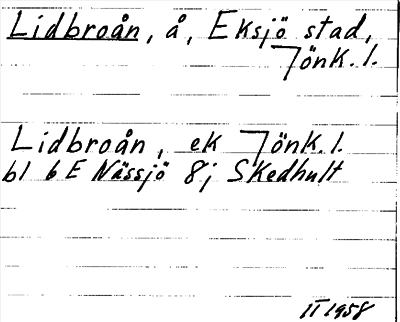 Lidbroån, å, Eksjö stad,
Jönk. l.
Lidbroån, ek Jönk. l.
bl 6 E Nässjö 8j Skedhult
II 1958